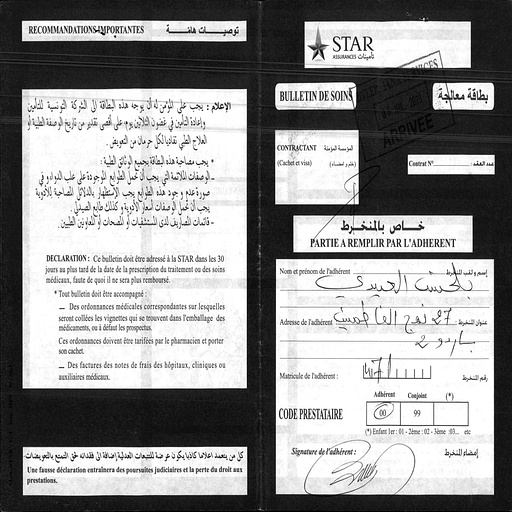 RECOMMANDATIONS IMPORTANTES
توصيــات هامــة
الإعلام : يجب على المؤمن له أن يوجه هذه البطاقة إلى الشركة التونسية للتأمين
وإعادة التأمين في غضون الثلاثين يوم، على أقصى تقدير من تاريخ الوصفة الطبية أو
العلاج الطبي تفاديا لكل حرمان من التعويض.
* يجب مصاحبة هذه البطاقة بجميع الوثائق الطبية :
- الوصفات الملائمة التي يجب أن تحمل الطوابع الموجودة على علب الدواء، وفي
صورة عدم وجود هذه الطوابع يجب الاستظهار بالدلائل المصاحبة للأدوية
يجب أن تحمل الوصفات أسعار الأدوية وكذلك طابع الصيدلي.
- قائمات المصاريف لدى المستشفيات أو المصحات أو المعاونين الطبيين.
DECLARATION : Ce bulletin doit être adressé à la STAR dans les 30
jours au plus tard de la date de la prescription du traitement ou des soins
médicaux, faute de quoi il ne sera plus remboursé.
* Tout bulletin doit être accompagné :
— Des ordonnances médicales correspondantes sur lesquelles
seront collées les vignettes qui se trouvent dans l'emballage des
médicaments, ou à défaut les prospectus.
Ces ordonnances doivent être tarifées par le pharmacien et porter
son cachet.
— Des factures des notes de frais des hôpitaux, cliniques ou
auxiliaires médicaux.
كل من يتعمد إعلاما كاذبا يكون عرضة للتتبعات العدلية إضافة إلى فقدانه حق التمتع بالتعويضات.
Une fausse déclaration entraînera des poursuites judiciaires et la perte du droit aux
prestations.
STAR
ASSURANCES تأمينات
BULLETIN DE SOINS
بطاقة معالجة
ARRIVEE
CONTRACTANT المؤسسة المؤمنة
(Cachet et visa) (ختم وإمضاء)
Contrat N° عدد العقد :
خــاص بالمنخــرط
PARTIE A REMPLIR PAR L'ADHERENT
Nom et prénom de l'adhérent إسم ولقب المنخرط
بلحسن العبيدي
Adresse de l'adhérent : 27 نهج عنوان المنخرط :
باردو 2
Matricule de l'adhérent : رقم المنخرط
Adhérent Conjoint (*)
CODE PRESTATAIRE 00 99
(*) Enfant 1er : 01 - 2ème : 02 - 3ème : 03... etc
Signature de l'adhérent : إمضاء المنخرط